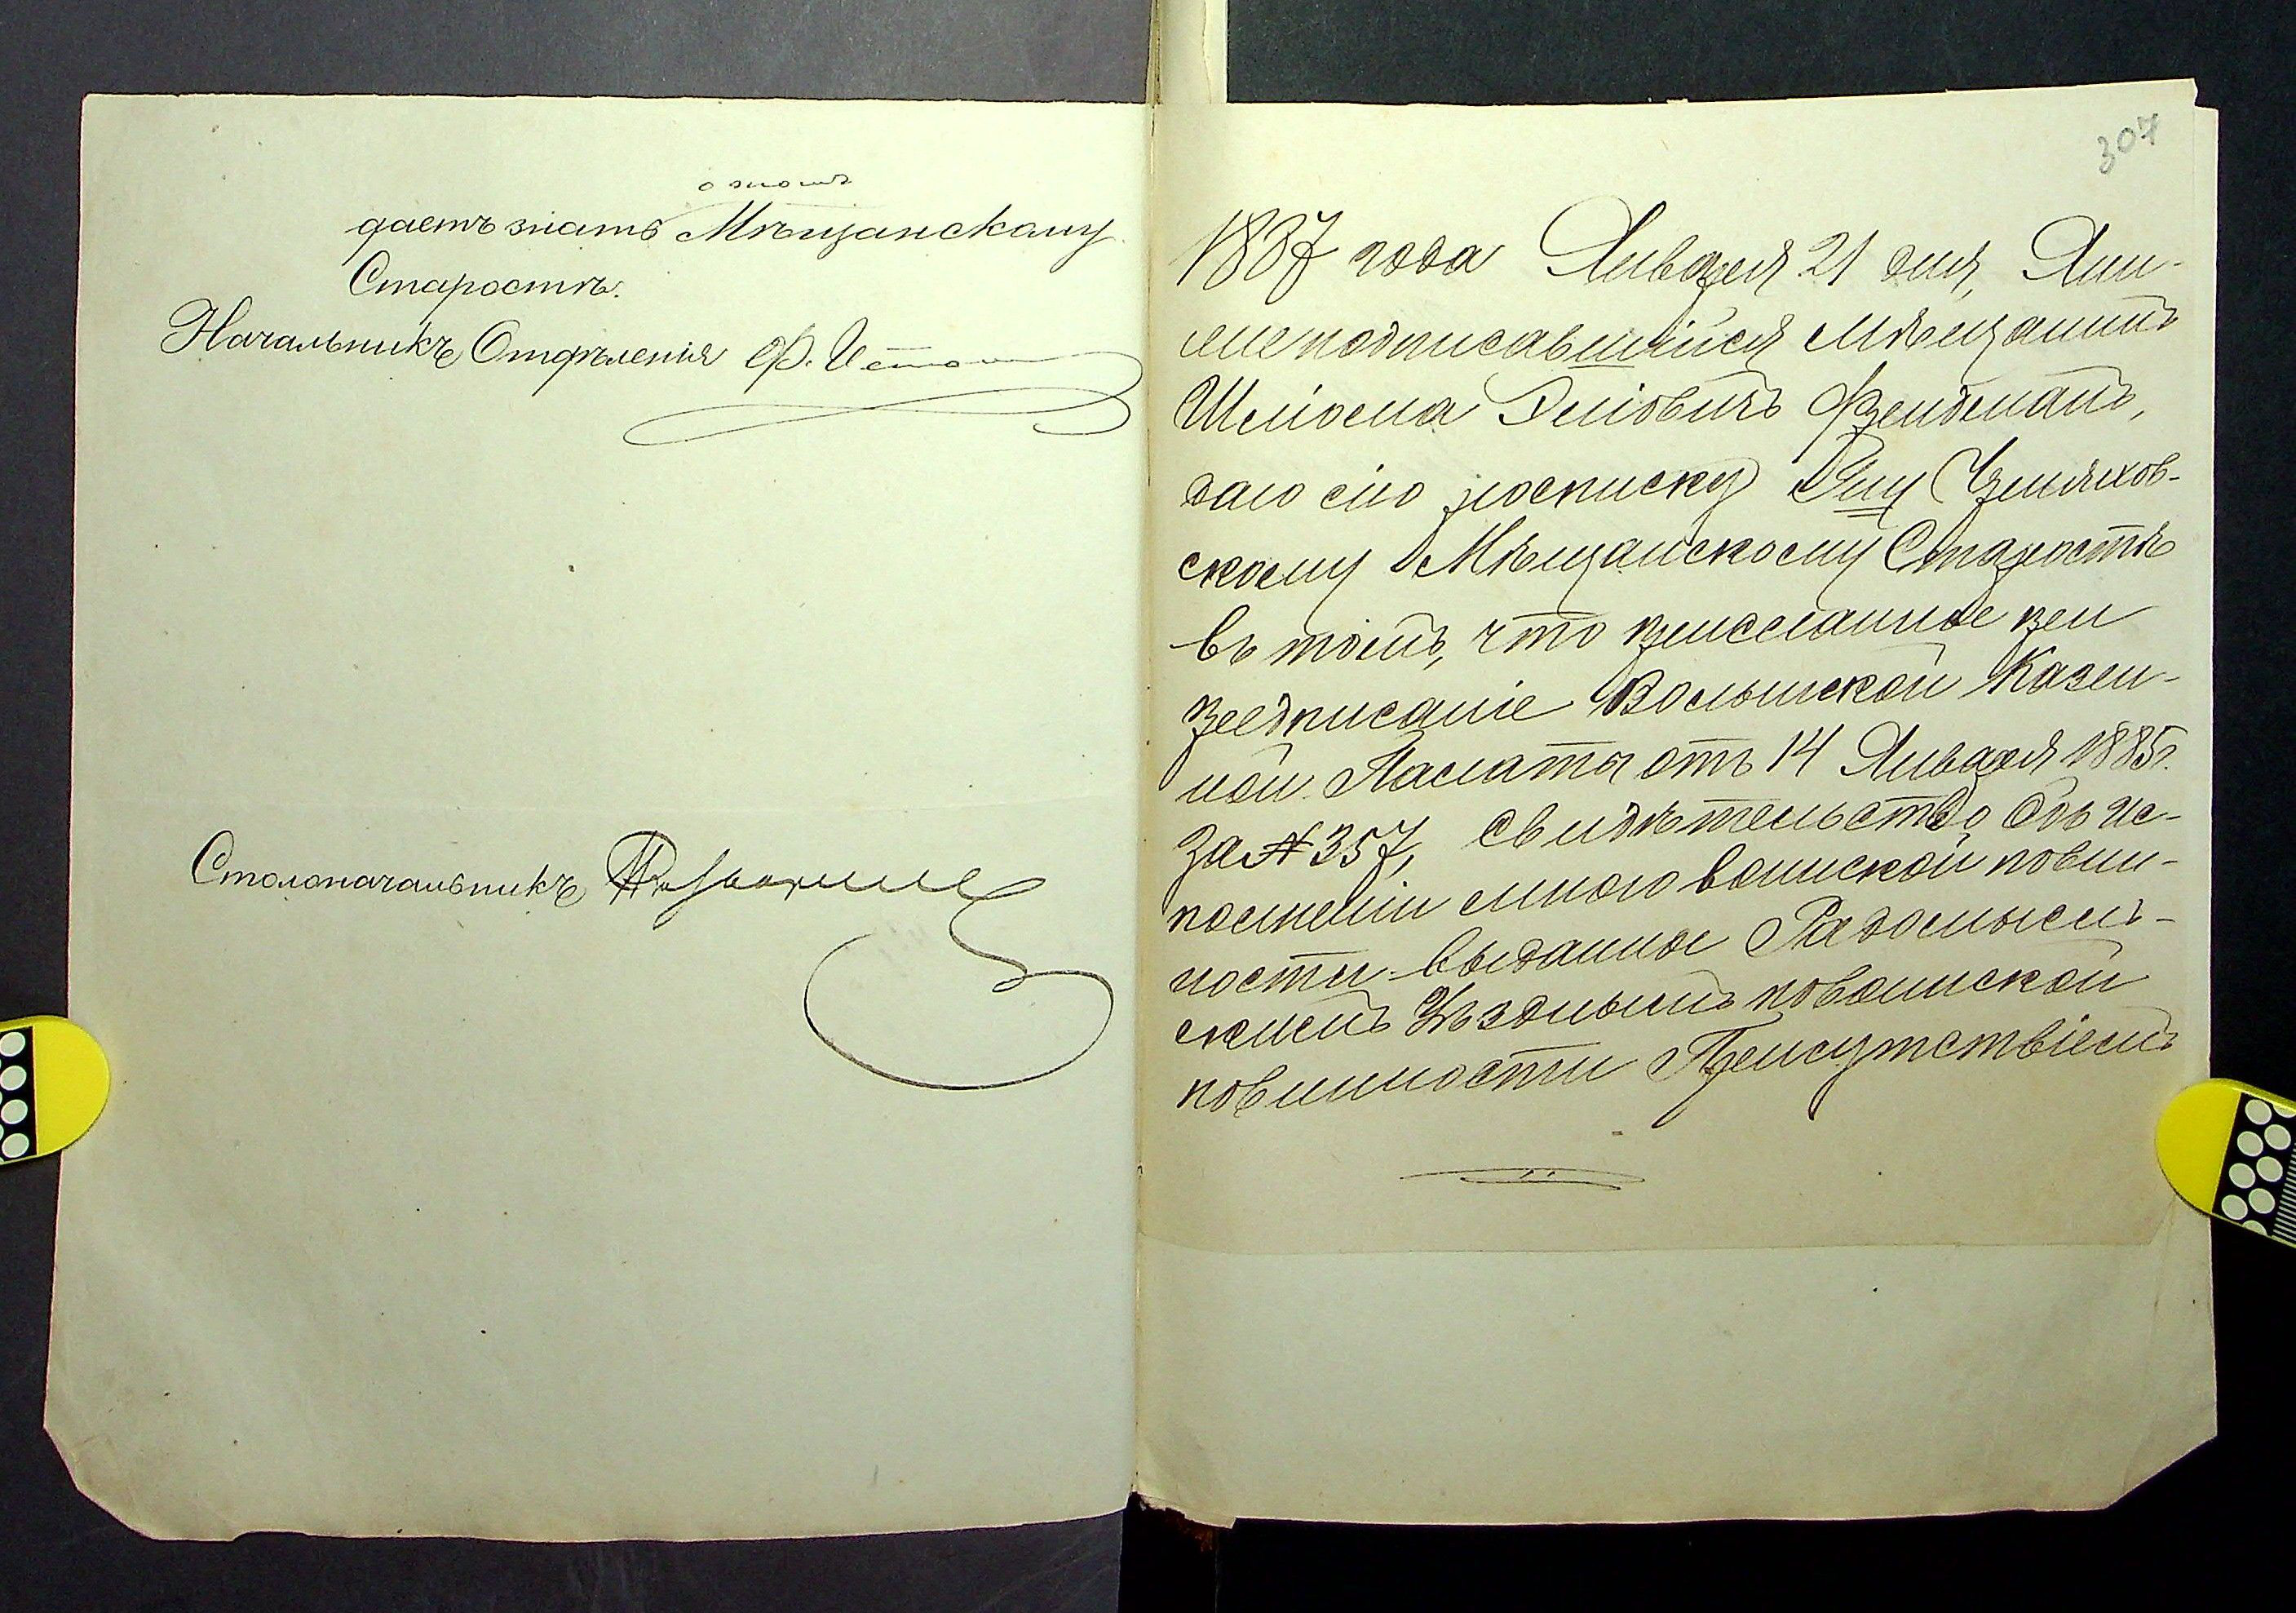 о томъ
даетъ знать Мѣщанскому
Старостѣ.
Начальникъ Отдѣленія Ф.
Столоначальникъ
307
1887 года Января 21 дня, Я ни-
жеподписавшійся Мѣщанинъ
Шліома Фридманъ,
даю сію росписку Г-ну Черняхов-
скому Мѣщанскому Старостѣ
въ томъ, что присланное при
предписаніе Волынской Казен-
ной Палаты отъ 14 Января 1885 г.
за № 357, свидѣтельство объ ис-
полненіи мною воинской повин-
ности выданное Радомысль-
скимъ Уѣзднымъ по воинской
повинности Присутствіемъ